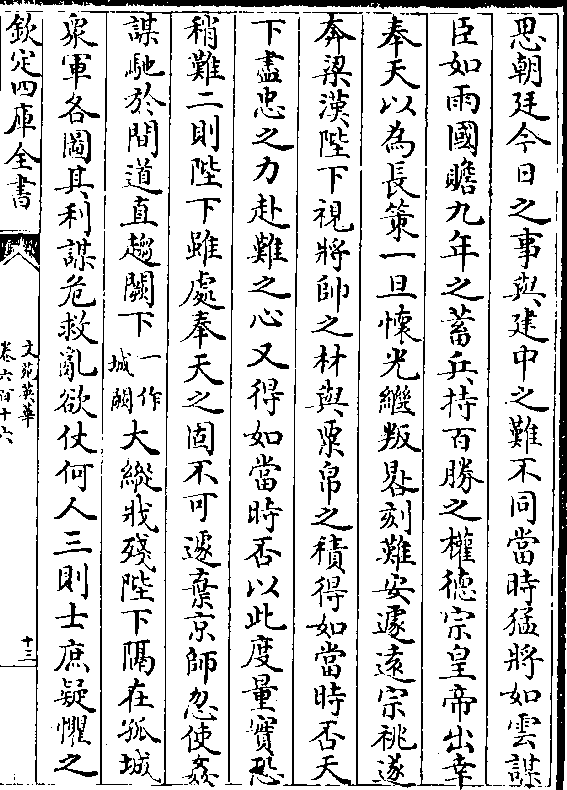 思朝廷今日之事與建中之難不同當時猛將如雲謀
臣如雨國贍九年之蓄兵持百勝之權德宗皇帝出幸
奉天以為長策一旦懷光繼叛晷刻難安遽遠宗祧遂
奔梁漢陛下視將帥之材與粟帛之積得如當時否天
下盡忠之力赴難之心又得如當時否以此度量實恐
稍難二則陛下雖處奉天之固不可遽棄京師忽使姦
謀馳於間道直趨闕下一作城闕大縱戕殘陛下隔在孤城
衆軍各圖其利謀危救亂欲仗何人三則士庶疑懼之
欽定四庫全書
文苑英華
卷六百十六
十三